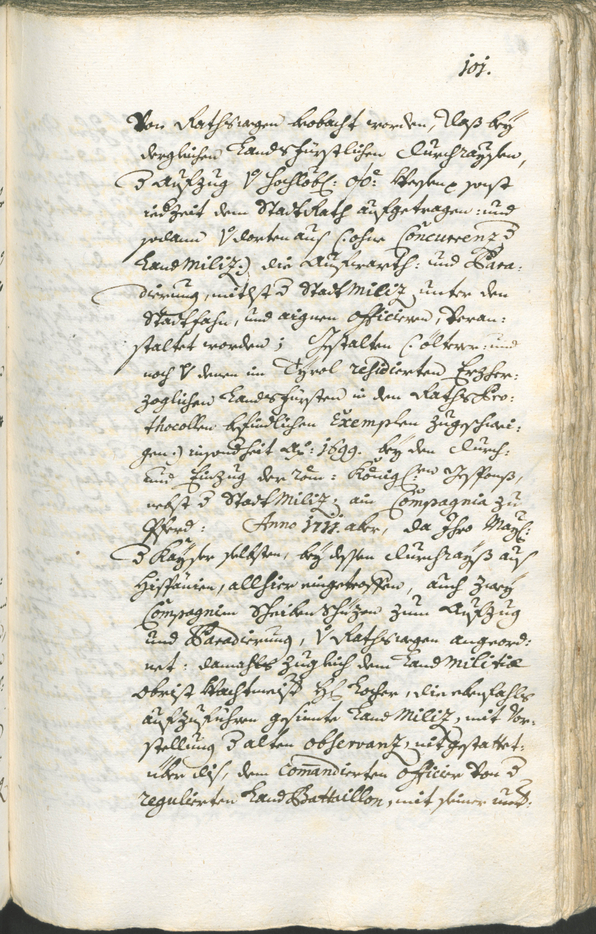 101.
Von Rathswegen beobacht worden, daß bey
dergleichen Landsfürstlichen Durchraysen,
Aufzug V Hochlöbl: OÖ: Wesen sonst
iedzeit dem StadtRath aufgetragen: und
sodann V dorten aus /:ohne Concurrenz
Land Miliz:/ die Aufwarth: und Para-
dierung, mitlst Stadt Miliz unter den
Stadtfahn, und aignen Officieren, veran-
staltet worden; Gestalten /:ältere: und
noch V denen in Tyrol residierten Erzher-
zoglichen Landsfürsten in den Raths Pro-
thocollen befindlichen Exemplen zugschwei-
gen:/ insonderheit Aõ: 1699. bey den Durch-
und Einzug der Röm: Königl:en Gesponß,
nebst Stadt Miliz: ain Compagnia zu
Pferd: Anno 1711. aber, da Ihro Mayl:
Kayser selbsten, bey dessen Durchrayß aus
Hispanien, allhier eingetroffen, auch zwey
Compagnien Scheiben Schüzen zum Aufzug
und Paradierung, V Rathswegen angeord-
net: damahls zugleich dem Land Militiæ
Obrist Wachtmeister Hl: Kocher, die ebenfahls
aufzufiehren gesinnte Land Miliz, mit Vor-
stellung alten observanz, nit gestattet:
über dis, dem Commandierten Officier von
regulierten Land Battaillon, mit seiner unt-